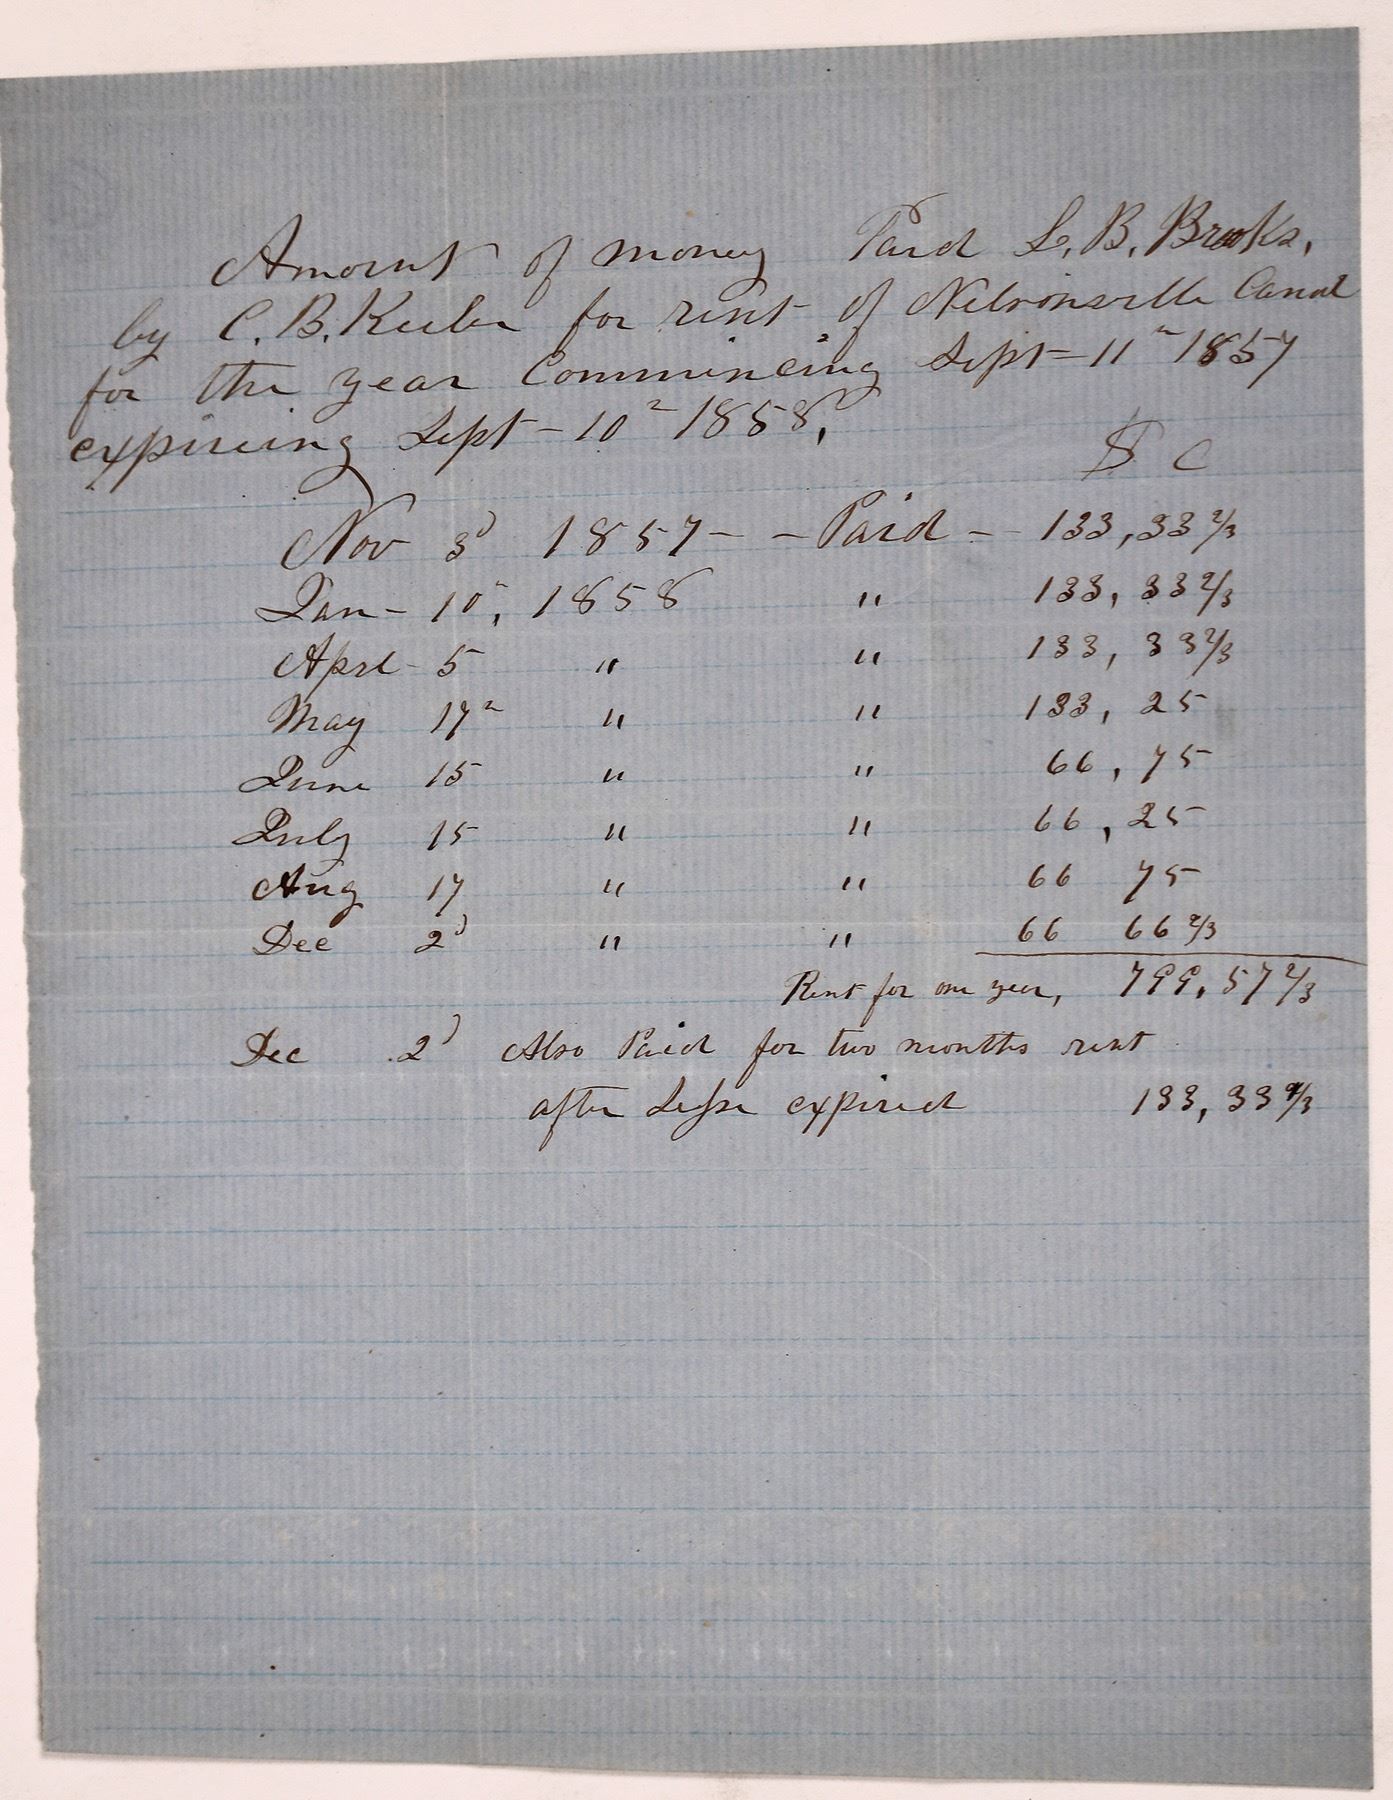 Amount of money Paid L. B. Brooks,
by C. B. Keeler for rent of Nelsonsville Canal
for the year Commencing Sept - 11" 1857
expireing Sept - 10" 1858,
$ C
Nov 3d 1857 - - Paid - 133,33 2/3
Jan - 10", 1858 " 133, 33 2/3
Aprl - 5 " " 133, 33 2/3
May 17" " " 133, 25
June 15 " " 66, 75
July 15 " " 66, 25
Aug 17 " " 66 75
Dec 2d " " 66 66 2/3
Rent for one year, 799, 57 2/3
Dec 2d Also Paid for two months rent
after Lease expired 133, 33 2/3